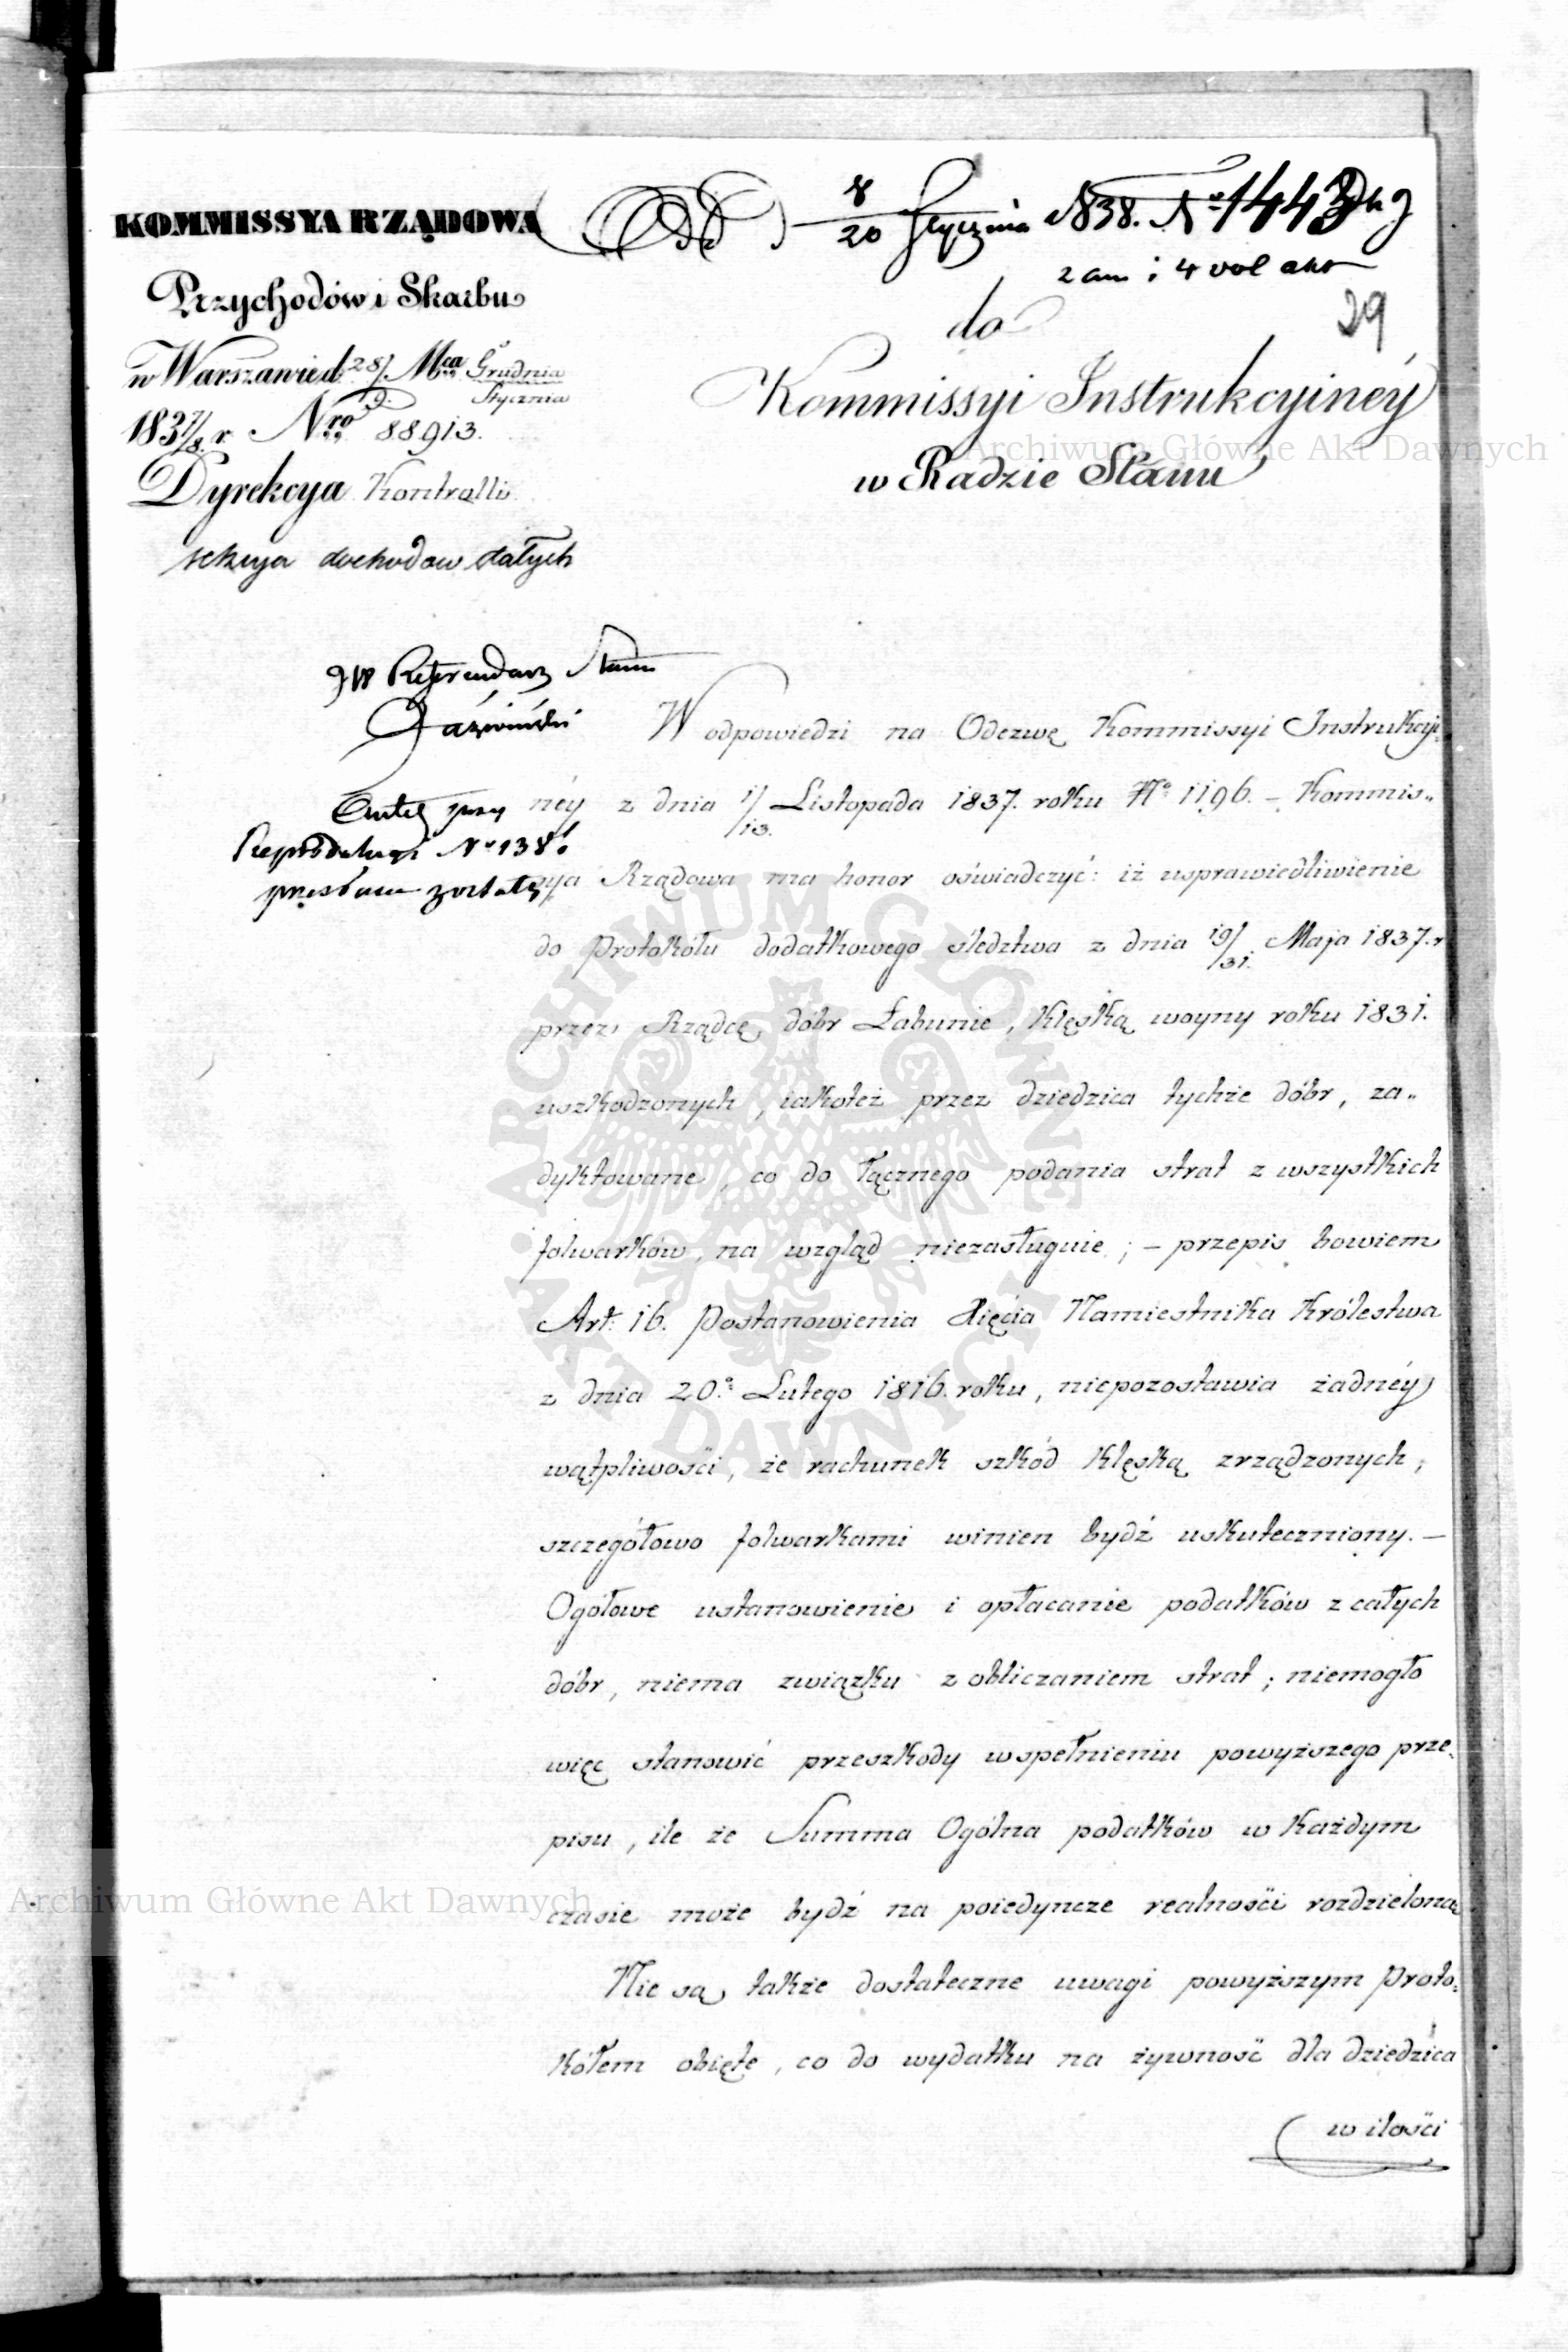 KOMMISSYA RZĄDOWA
Przychodów i Skarbu
w Warszawie d. 28/9. Mca Grudnia Stycznia
1837/8. r. Nro 88913.
Dyrekcya Kontrolli
sekcya dochodow stałych
8/20 Stycznia 1838. No 1443
2 an i 4 vol akt
29
do
Kommissyi Instrukcyiney
w Radzie Stanu
JW Referendarz Stanu
Akta przy
Reproduktach No 138.
przesłane zostały
W odpowiedzi na Odezwę Kommissyi Instrukcyi-
néy z dnia 1/13. Listopada 1837. roku No 1196. – Kommis„
sya Rządowa ma honor oświadczyć: iż usprawiedliwienie
do Protokółu dodatkowego śledztwa z dnia 19/31. Maja 1837. r
przez Rządcę dóbr Łabunie, klęską woyny roku 1831.
uszkodzonych, iakoteż przez dziedzica tychże dóbr, za„
dyktowane, co do łącznego podania strat z wszystkich
folwarków, na wzgląd niezasługuie; – przepis bowiem
Art. 16. Postanowienia Xięcia Namiestnika Królestwa
z dnia 20.o Lutego 1816. roku, niepozostawia żadnéy
wątpliwości, że rachunek szkód klęską zrządzonych,
szczegółowo folwarkami winien bydź uskuteczniony. –
Ogółowe ustanowienie i opłacanie podatków z całych
dóbr, niema związku z obliczaniem strat; niemogło
więc stanowić przeszkody w spełnieniu powyższego prze„
pisu, ile że Summa Ogólna podatków w każdym
czasie może bydź na poiedyncze realności rozdzielona.
Nie są także dostateczne uwagi powyższym Proto„
kółem obięte, co do wydatku na żywność dla dziedzica
w ilości
Archiwum Główne Akt Dawnych
Archiwum Główne Akt Dawnych
ARCHIWUM GŁÓWNE AKT DAWNYCH